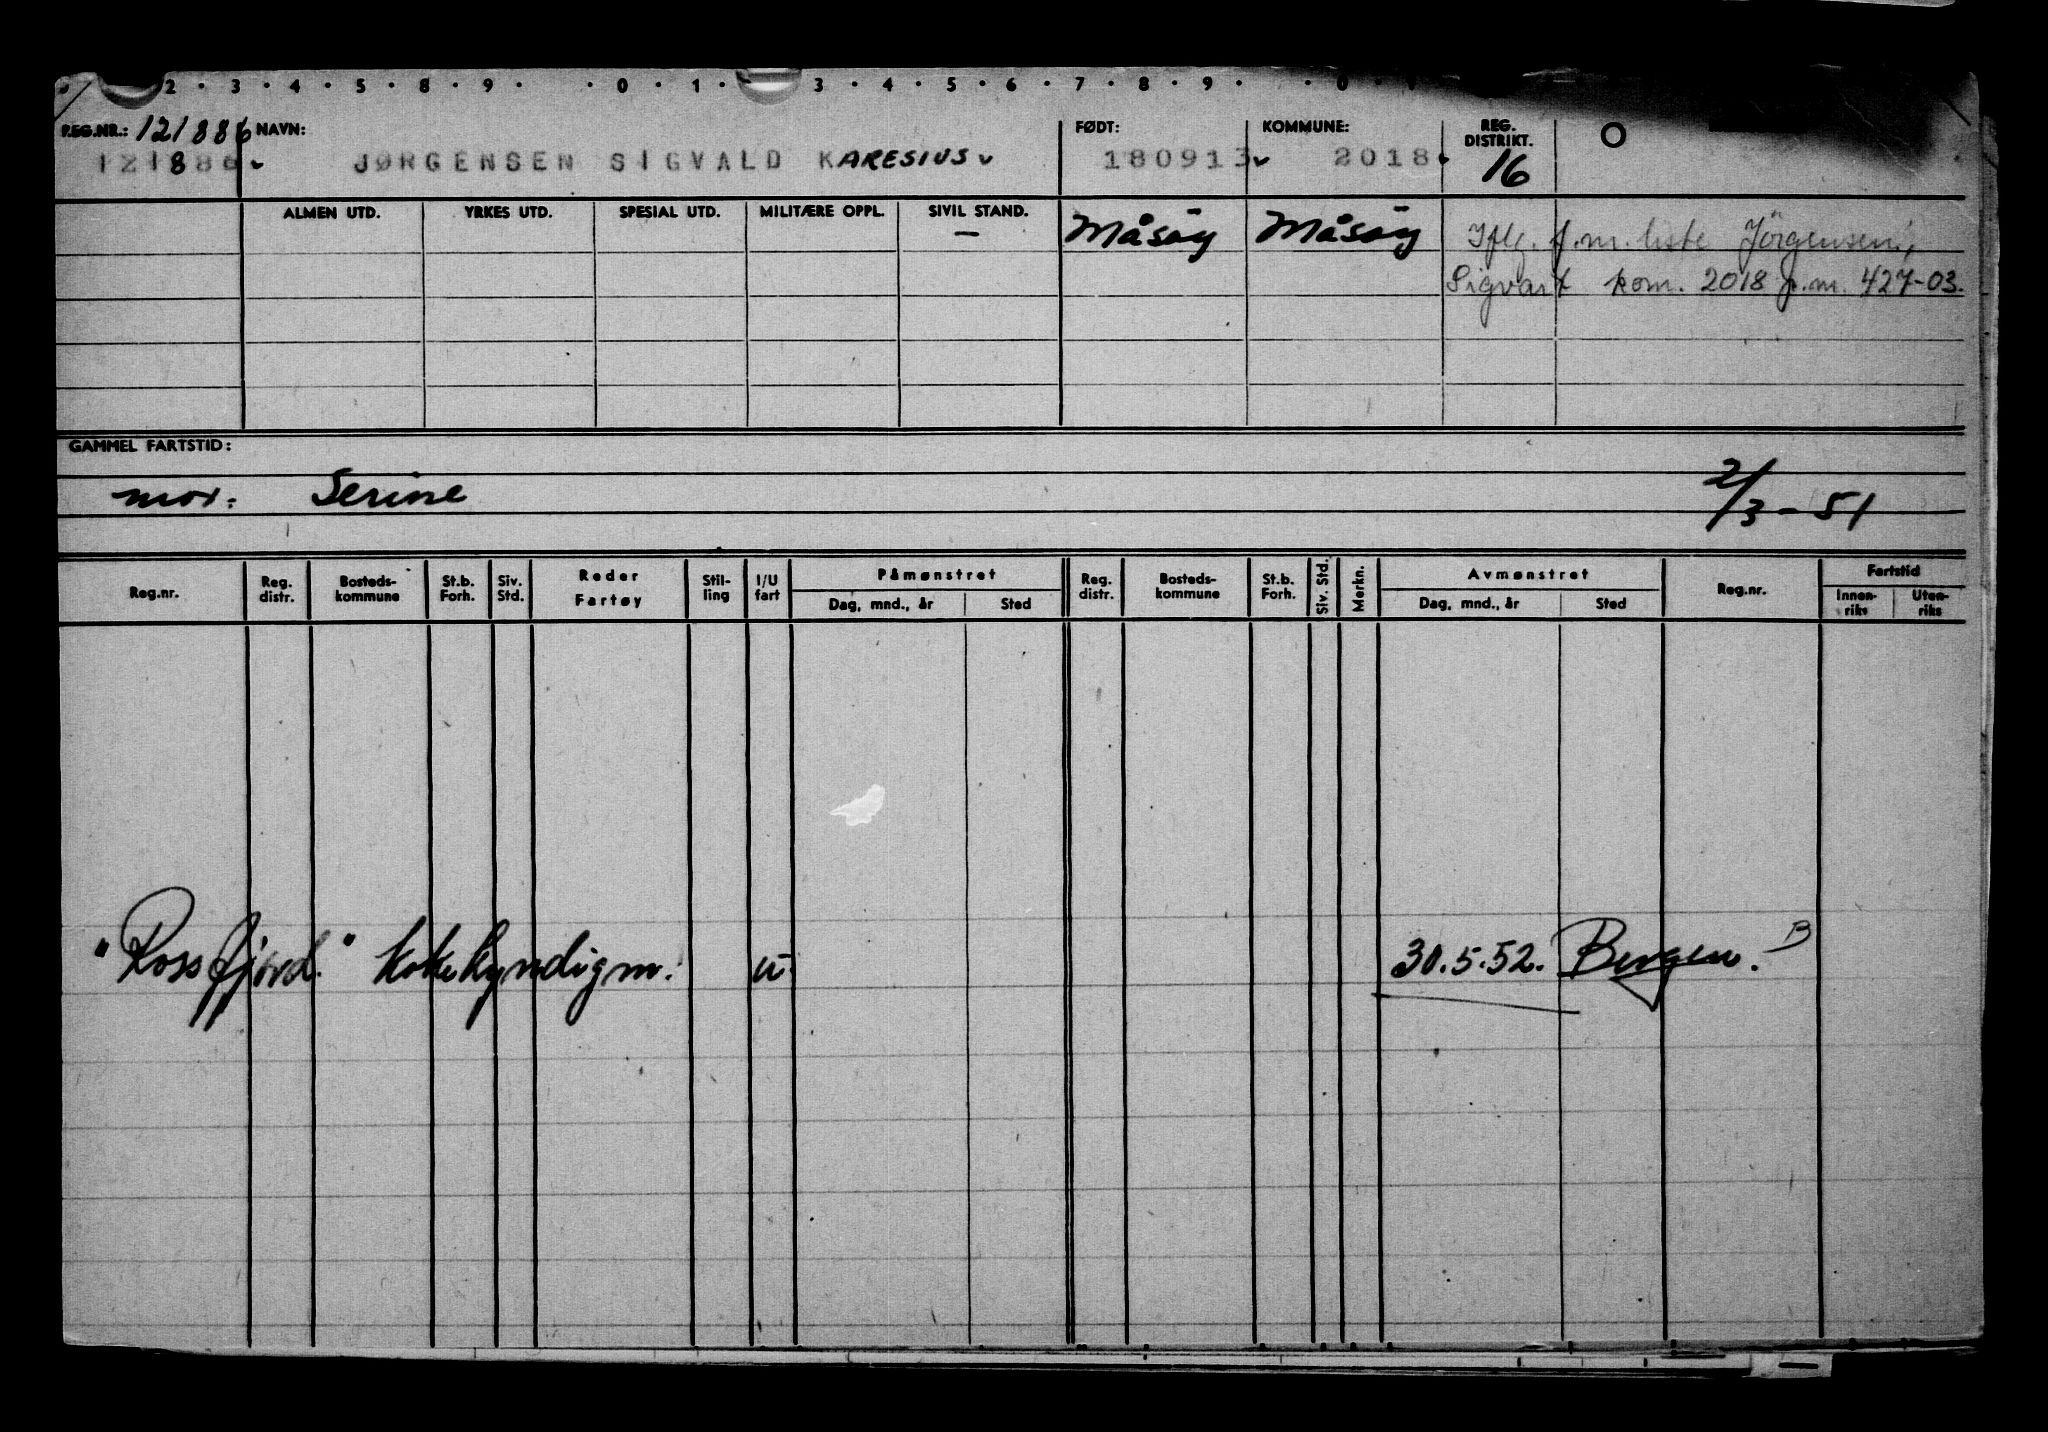 2 · 3 · 4 · 5 · 8 · 9 · · 0 · 1 · 3 · 4 · 5 · 6 · 7 · 8 · 9 · · 0 ·
REG.NR.: 121886 NAVN: FØDT: KOMMUNE: REG. DISTRIKT. O
121886 JØRGENSEN SIGVALD KARESIUS 180913 2018 16
ALMEN UTD. YRKES UTD. SPESIAL UTD. MILITÆRE OPPL. SIVIL STAND.
— Måsøy Måsøy Iflg. f.m. liste Jörgensen,
Sigvart kom. 2018 p.m. 427-03.
GAMMEL FARTSTID:
mor: Serine 2/3-51
Reg.nr. Reg. distr. Bosteds-kommune St.b. Forh. Siv. Std. Reder Fartøy Stil-ling I/U fart Påmønstret Dag, mnd., år Sted Reg. distr. Bosteds-kommune St.b. Forh. Siv. Std. Merkn. Avmønstret Dag, mnd., år Sted Reg.nr. Fartstid Innen-riks Uten-riks
"Rossfjord." Kokekyndigm. u 30.5.52. Bergen. B